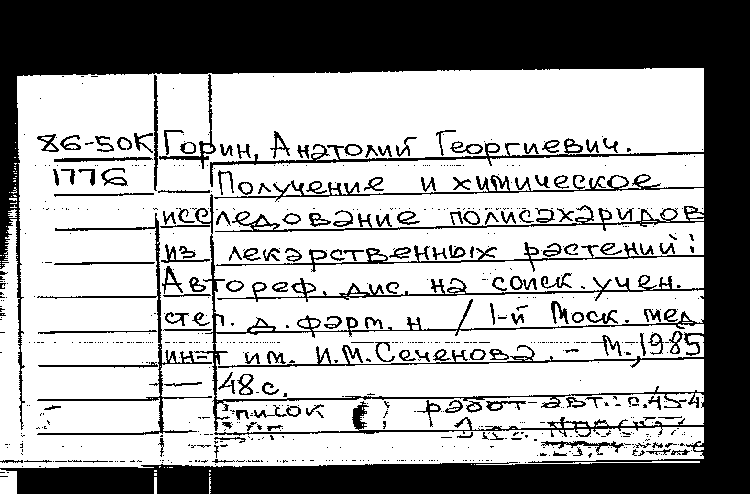 86-50К Горин, Анатолий Георгиевич.
1776 Получение и химическое
исследование полисахаридов
из лекарственных растений:
Автореф. дис. на соиск. учен.
степ. д. фарм. н / 1-й Моск. мед.
ин-т им. И.М. Сеченова. – М., 1985
– 48 с.
Список работ авт.: с. 45-4